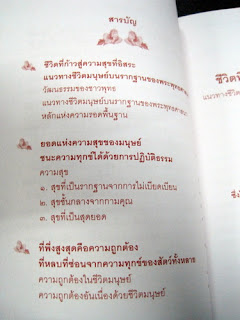 สารบัญ
ชีวิตที่ก้าวสู่ความสุขที่อิสระ
แนวทางชีวิตมนุษย์บนรากฐานของพระพุทธศาสนา
วัฒนธรรมของชาวพุทธ
แนวทางชีวิตมนุษย์บนรากฐานของพระพุทธศาสนา
หลักแห่งความรอดพื้นฐาน
ยอดแห่งความสุขของมนุษย์
ชนะความทุกข์ได้ด้วยการปฏิบัติธรรม
ความสุข
๑. สุขที่เป็นรากฐานจากการไม่เบียดเบียน
๒. สุขชั้นกลางจากกามคุณ
๓. สุขที่เป็นสุดยอด
ที่พึ่งสูงสุดคือความถูกต้อง
ที่หลบที่ซ่อนจากความทุกข์ของสัตว์ทั้งหลาย
ความถูกต้องในชีวิตมนุษย์
ความถูกต้องอันเนื่องด้วยชีวิตมนุษย์
ชีวิตที่
แนวทางชีวิต